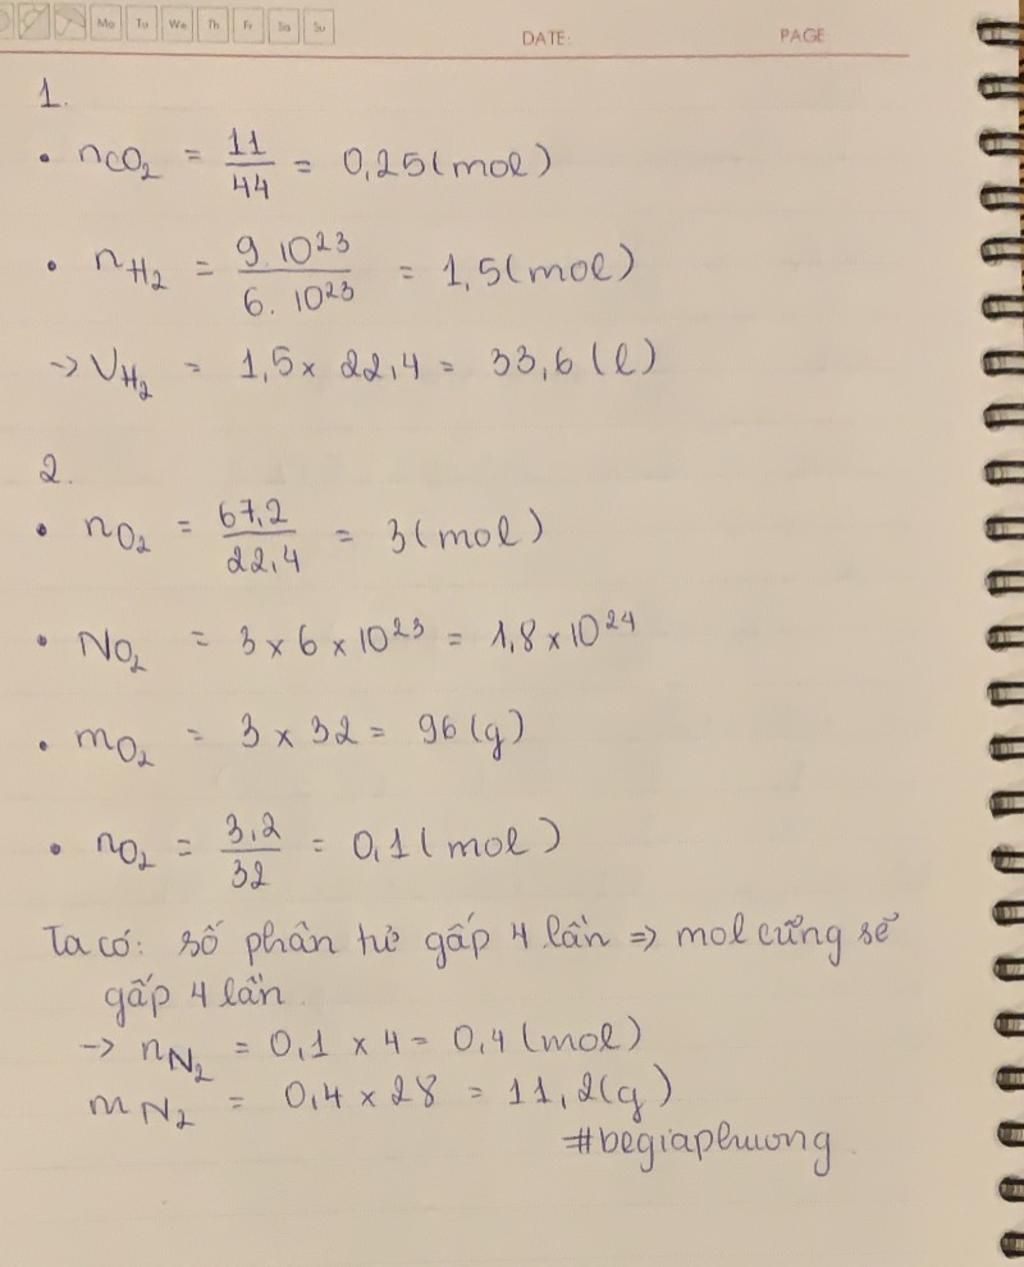 Mo Tu We Th Fr Sa Su
DATE: PAGE
1.
• nCO₂ = 11/44 = 0,25 (mol)
• nH₂ = 9.10²³/6.10²³ = 1,5 (mol)
-> VH₂ = 1,5 x 22,4 = 33,6 (l)
2.
• nO₂ = 67,2/22,4 = 3 (mol)
• NO₂ = 3 x 6 x 10²³ = 1,8 x 10²⁴
• mO₂ = 3 x 32 = 96 (g)
• nO₂ = 3,2/32 = 0,1 (mol)
Ta có: số phân tử gấp 4 lần => mol cũng sẽ
gấp 4 lần.
-> nN₂ = 0,1 x 4 = 0,4 (mol)
mN₂ = 0,4 x 28 = 11,2 (g)
#begiaphuong